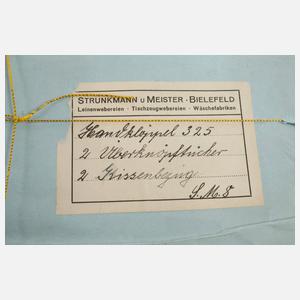 STRUNKMANN U MEISTER · BIELEFELD
Leinenwebereien · Tischzeugwebereien · Wäschefabriken
Handklöppel 325
2 Überknöpftücher
2 Kissenbezüge
S. M. 8